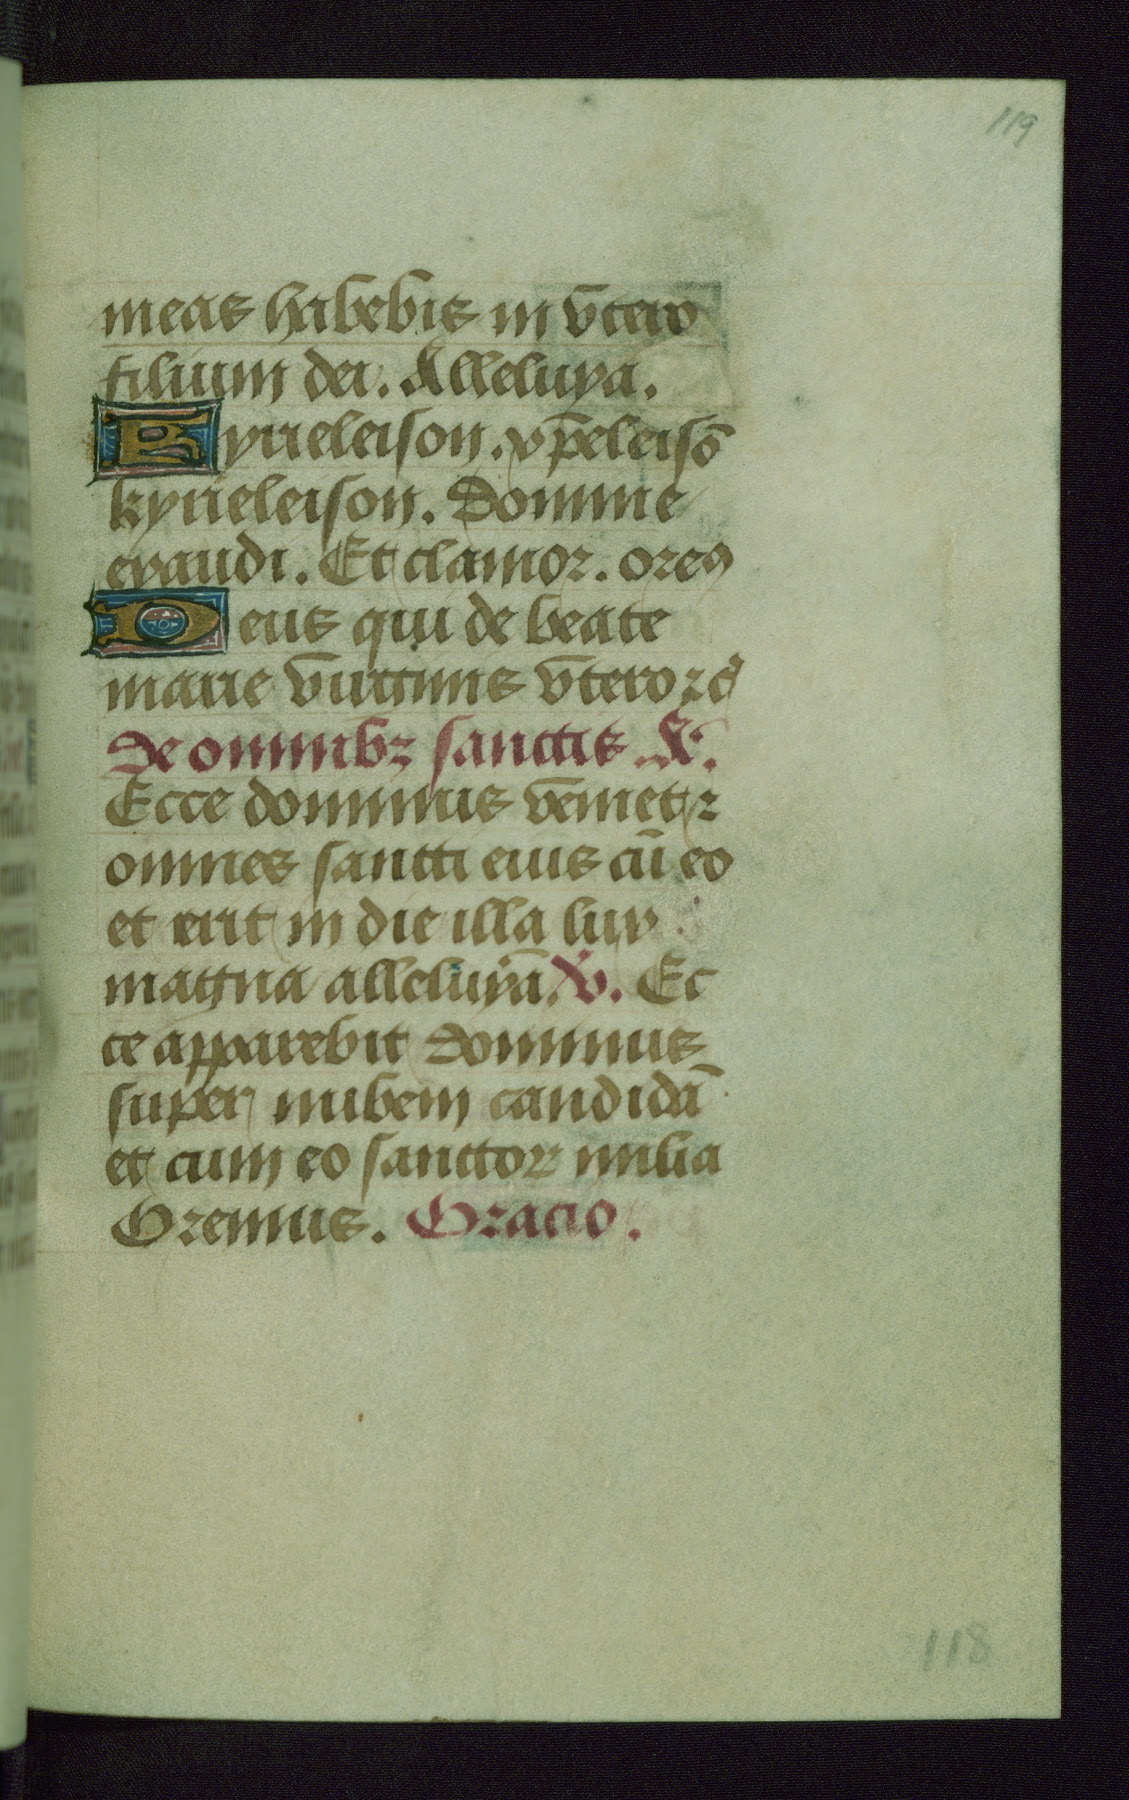 119
meas habebis in vtero
filium dei. Alleluya.
Kyrieleison. xp̄eleisō
kyrieleison. Domine
exaudi. Et clamor. orem9
Deus qui de beate
marie virginis vtero ꝛc̄
De omnibꝫ sanctis. A͞.
Ecce dominus veniet ꝛ
omnes sancti eius cū eo
et erit in die illa lux
magna alleluyā. v̄. Ec
ce apparebit dominus
super nubem candidā
et cum eo sanctoꝝ milia
Oremus. Oracio.
118